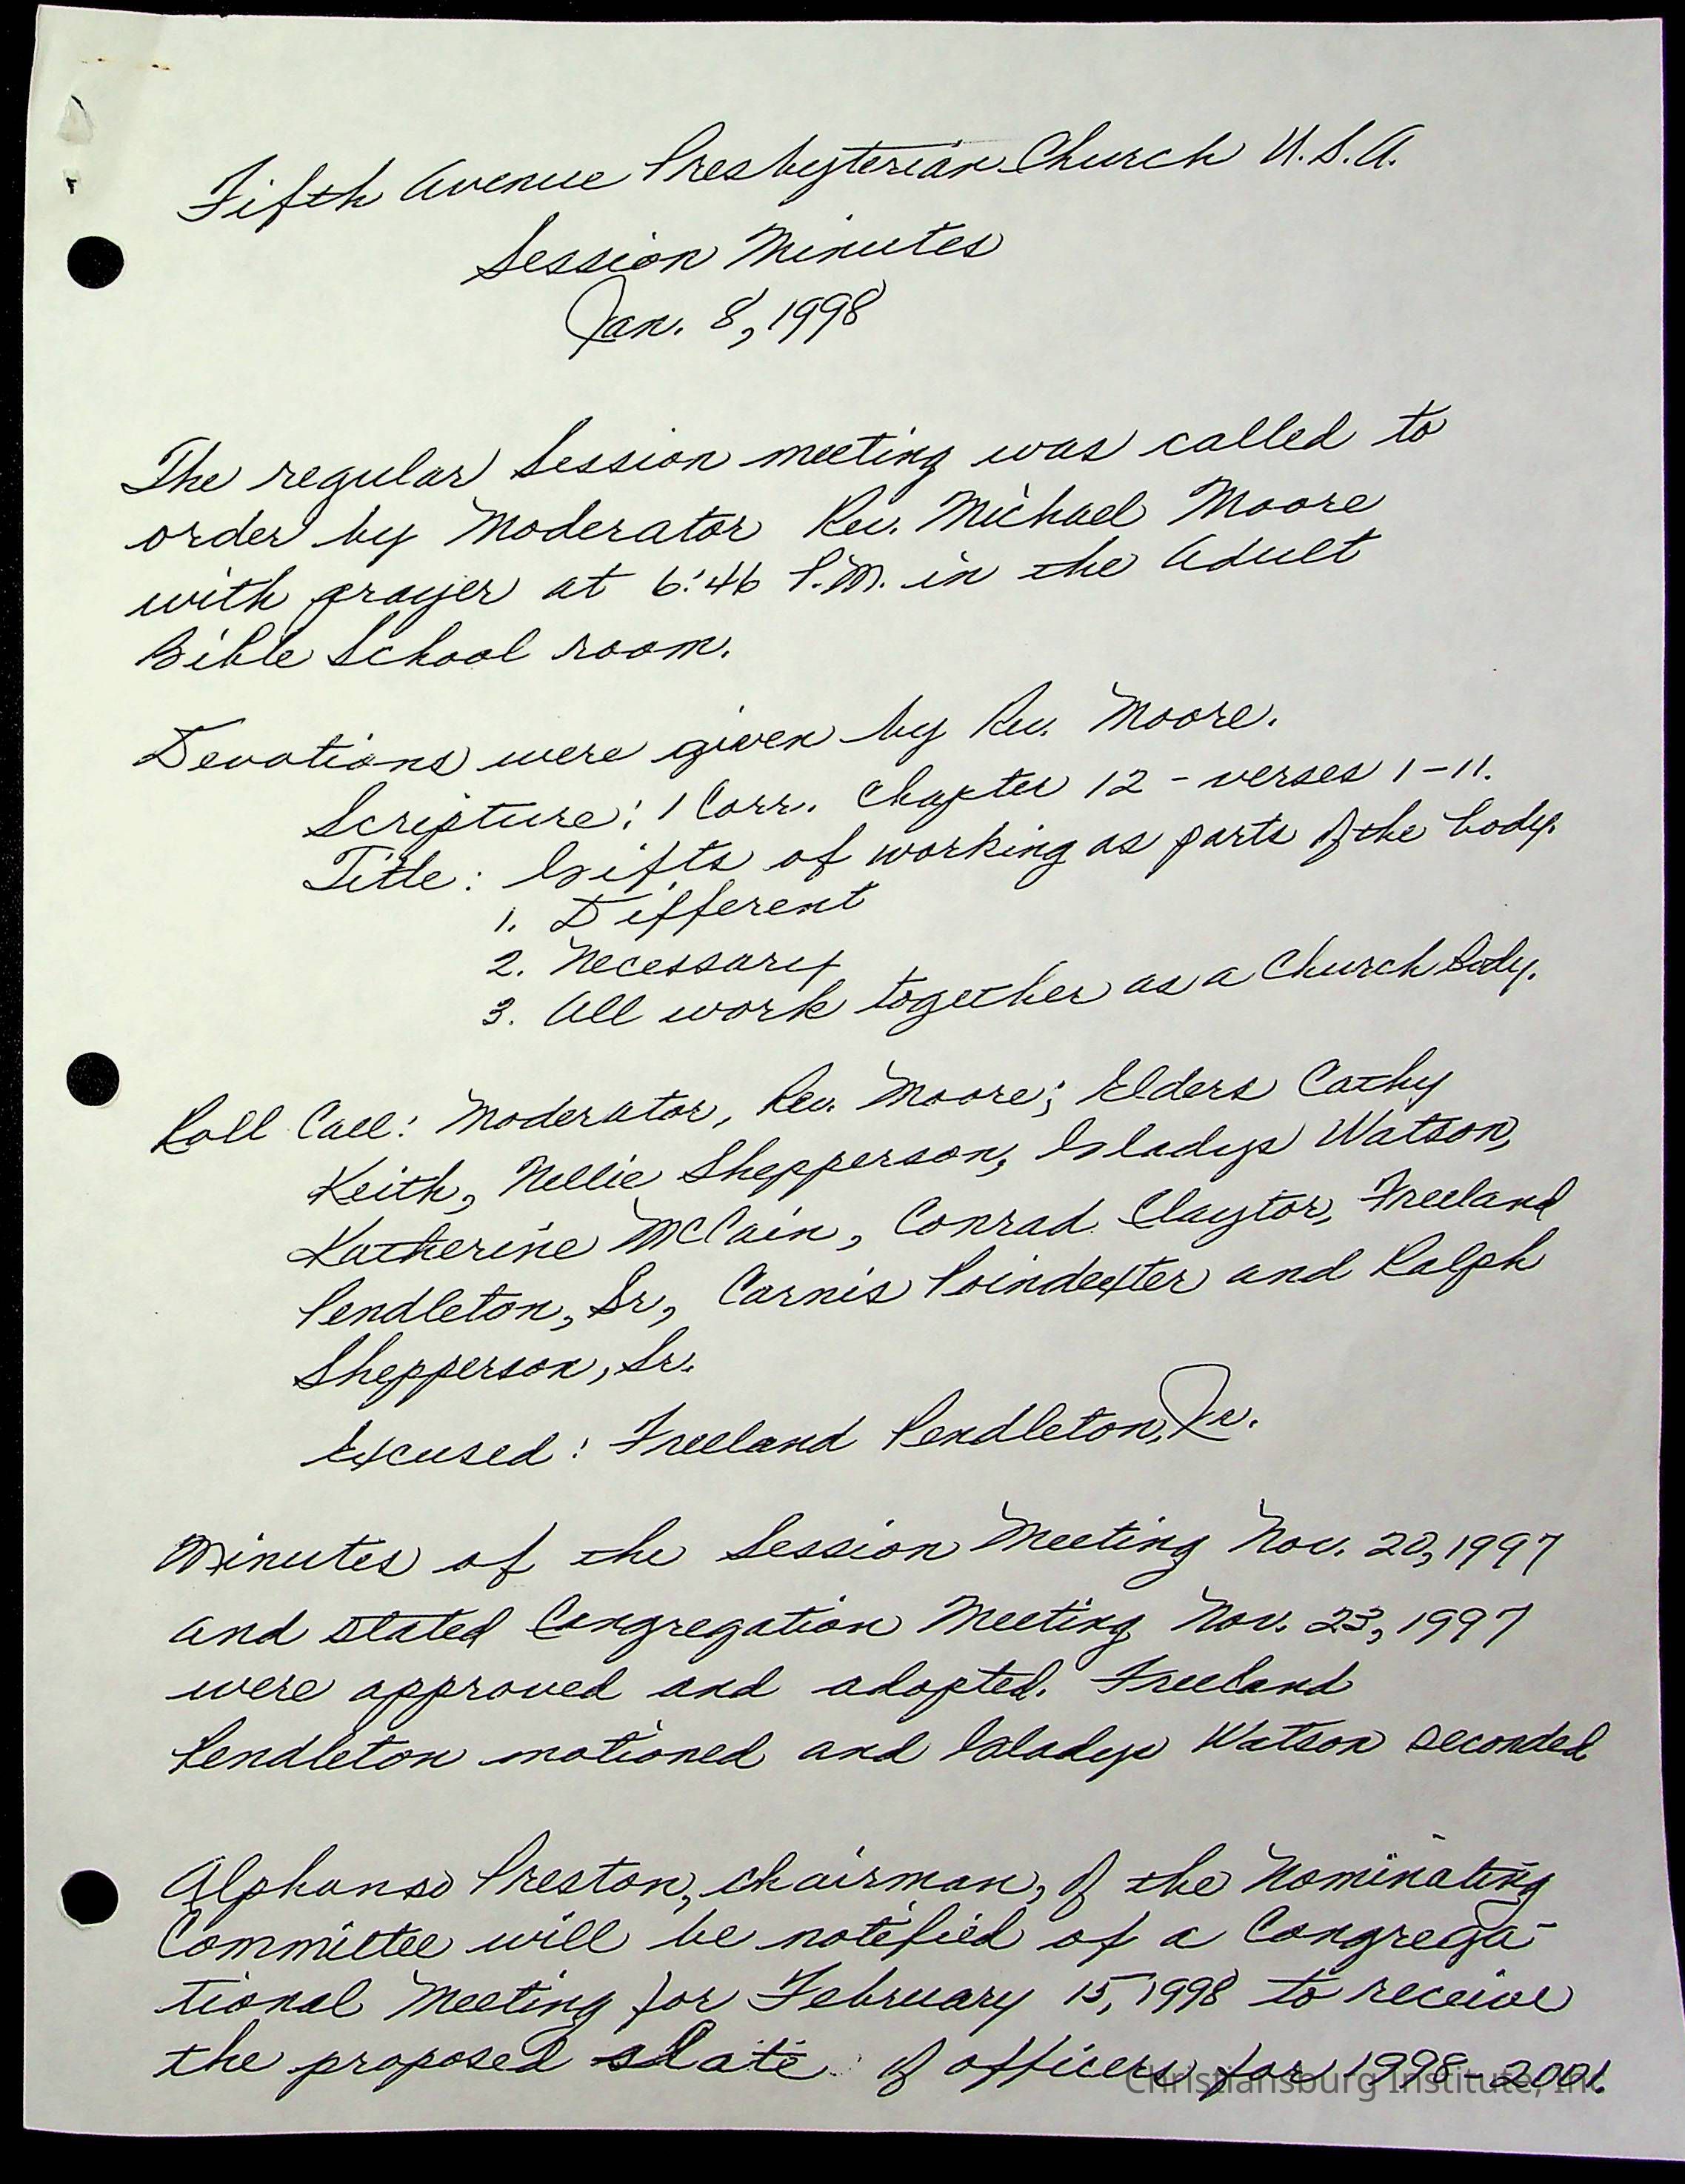 Fifth Avenue Presbyterian Church U.S.A.
Session Minutes
Jan. 8, 1998
The regular Session meeting was called to
order by Moderator Rev. Michael Moore
with prayer at 6:46 P.M. in the Adult
Bible School room.
Devotions were given by Rev. Moore.
Scripture: 1 Corr. Chapter 12 - verses 1-11.
Title: Gifts of working as parts of the body.
1. Different
2. Necessary
3. All work together as a Church body.
Roll Call: Moderator, Rev. Moore; Elders Cathy
Keith, Nellie Shepperson, Gladys Watson,
Katherine McCain, Conrad Claytor, Freeland
Pendleton, Sr., Carnis Poindexter and Ralph
Shepperson, Sr.
Excused: Freeland Pendleton, Jr.
Minutes of the Session Meeting Nov. 20, 1997
and stated Congregation Meeting Nov. 23, 1997
were approved and adopted. Freeland
Pendleton motioned and Gladys Watson seconded
Alphonso Preston, chairman, of the Nominating
Committee will be notified of a Congrega-
tional Meeting for February 15, 1998 to receive
the proposed slate of officers for 1998-2001.
Christiansburg Institute, Inc.